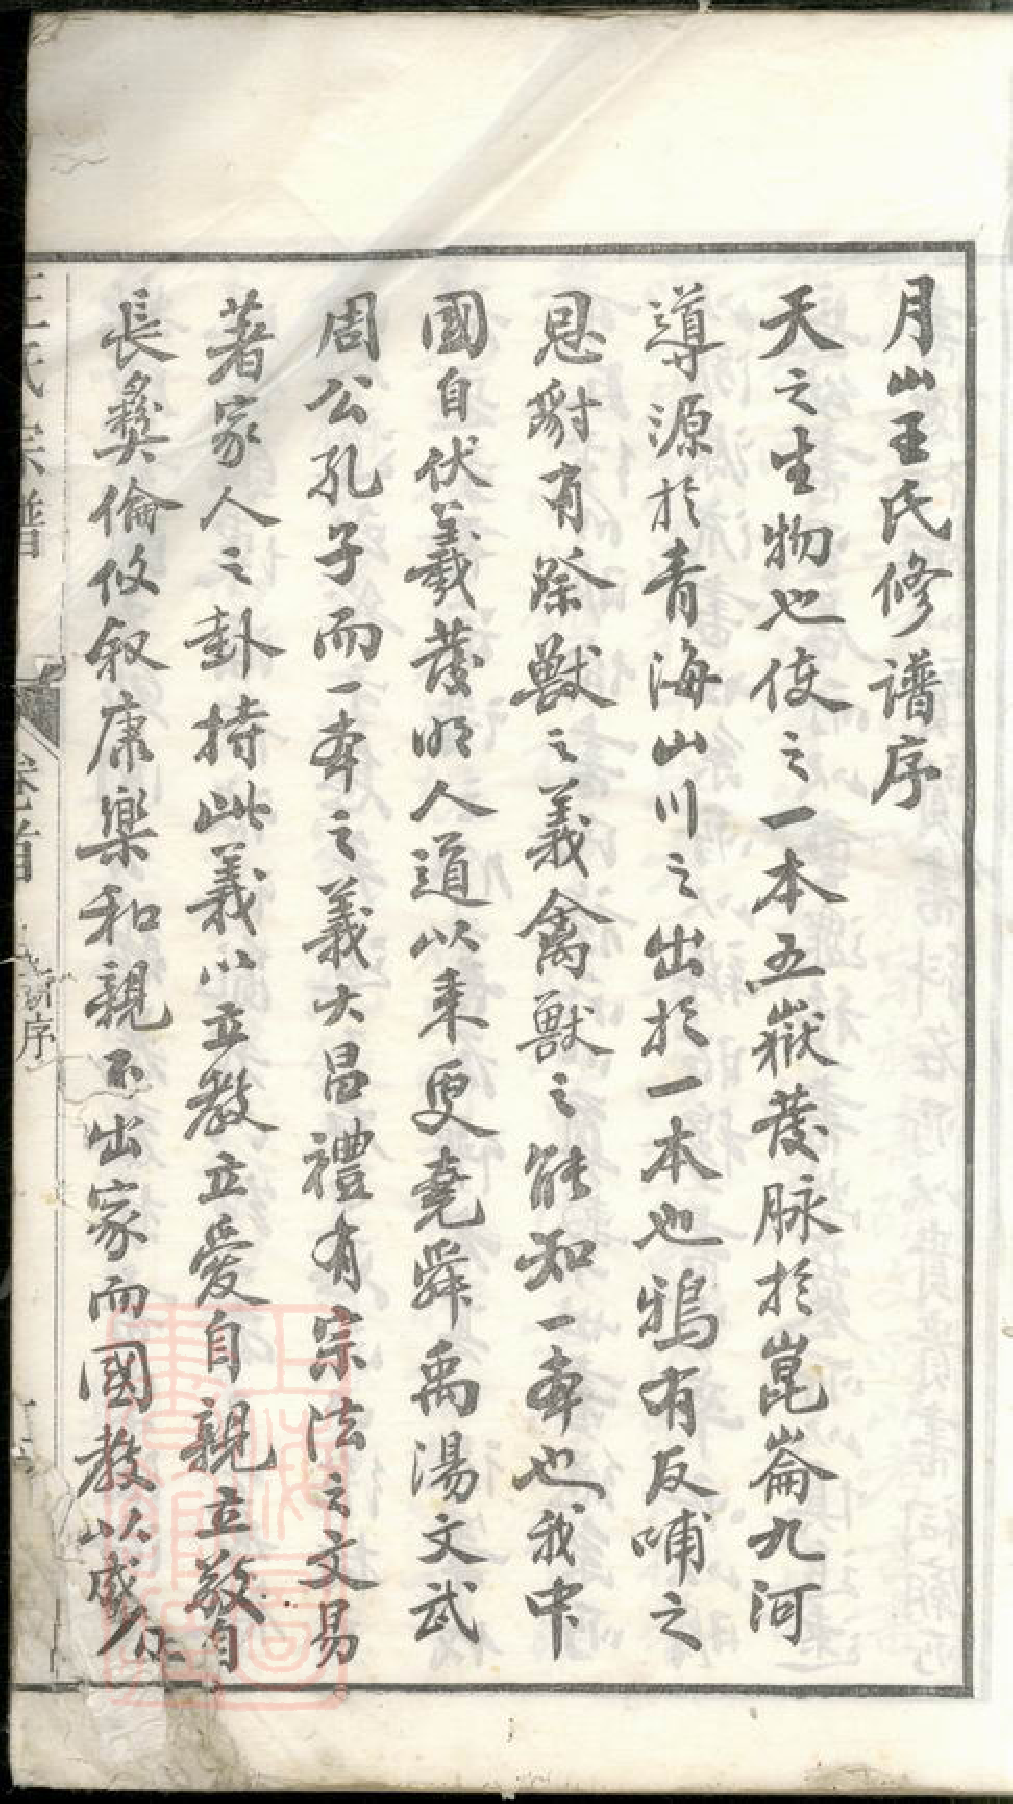 月山王氏修譜序
天之生物也使之一本五嶽發脉於崑崙九河
導源於青海山川之出於一本也鴉有反哺之
恩豺有祭獸之義禽獸之能知一本也我中
國自伏羲發明人道以来更堯舜禹湯文武
周公孔子而一本之義大昌禮有宗法之文易
著家人之卦持此義以立教立愛自親立敬自
長彝倫攸叙康樂和親不出家而國教以成
王氏宗譜
卷首
序